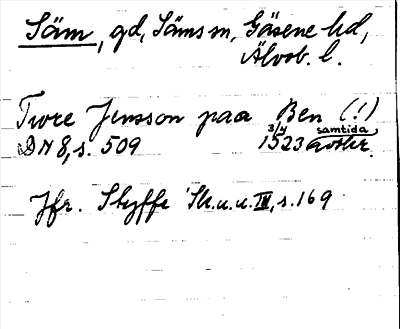 Säm, gd, Säms sn, Gäsene hd,
Älvsb. l.
Twre Jensson paa Ben (!)
DN 8, s. 509 3/4 1523 samtida avskr.
Jfr. Styffe Sk.u.u. III, s. 169